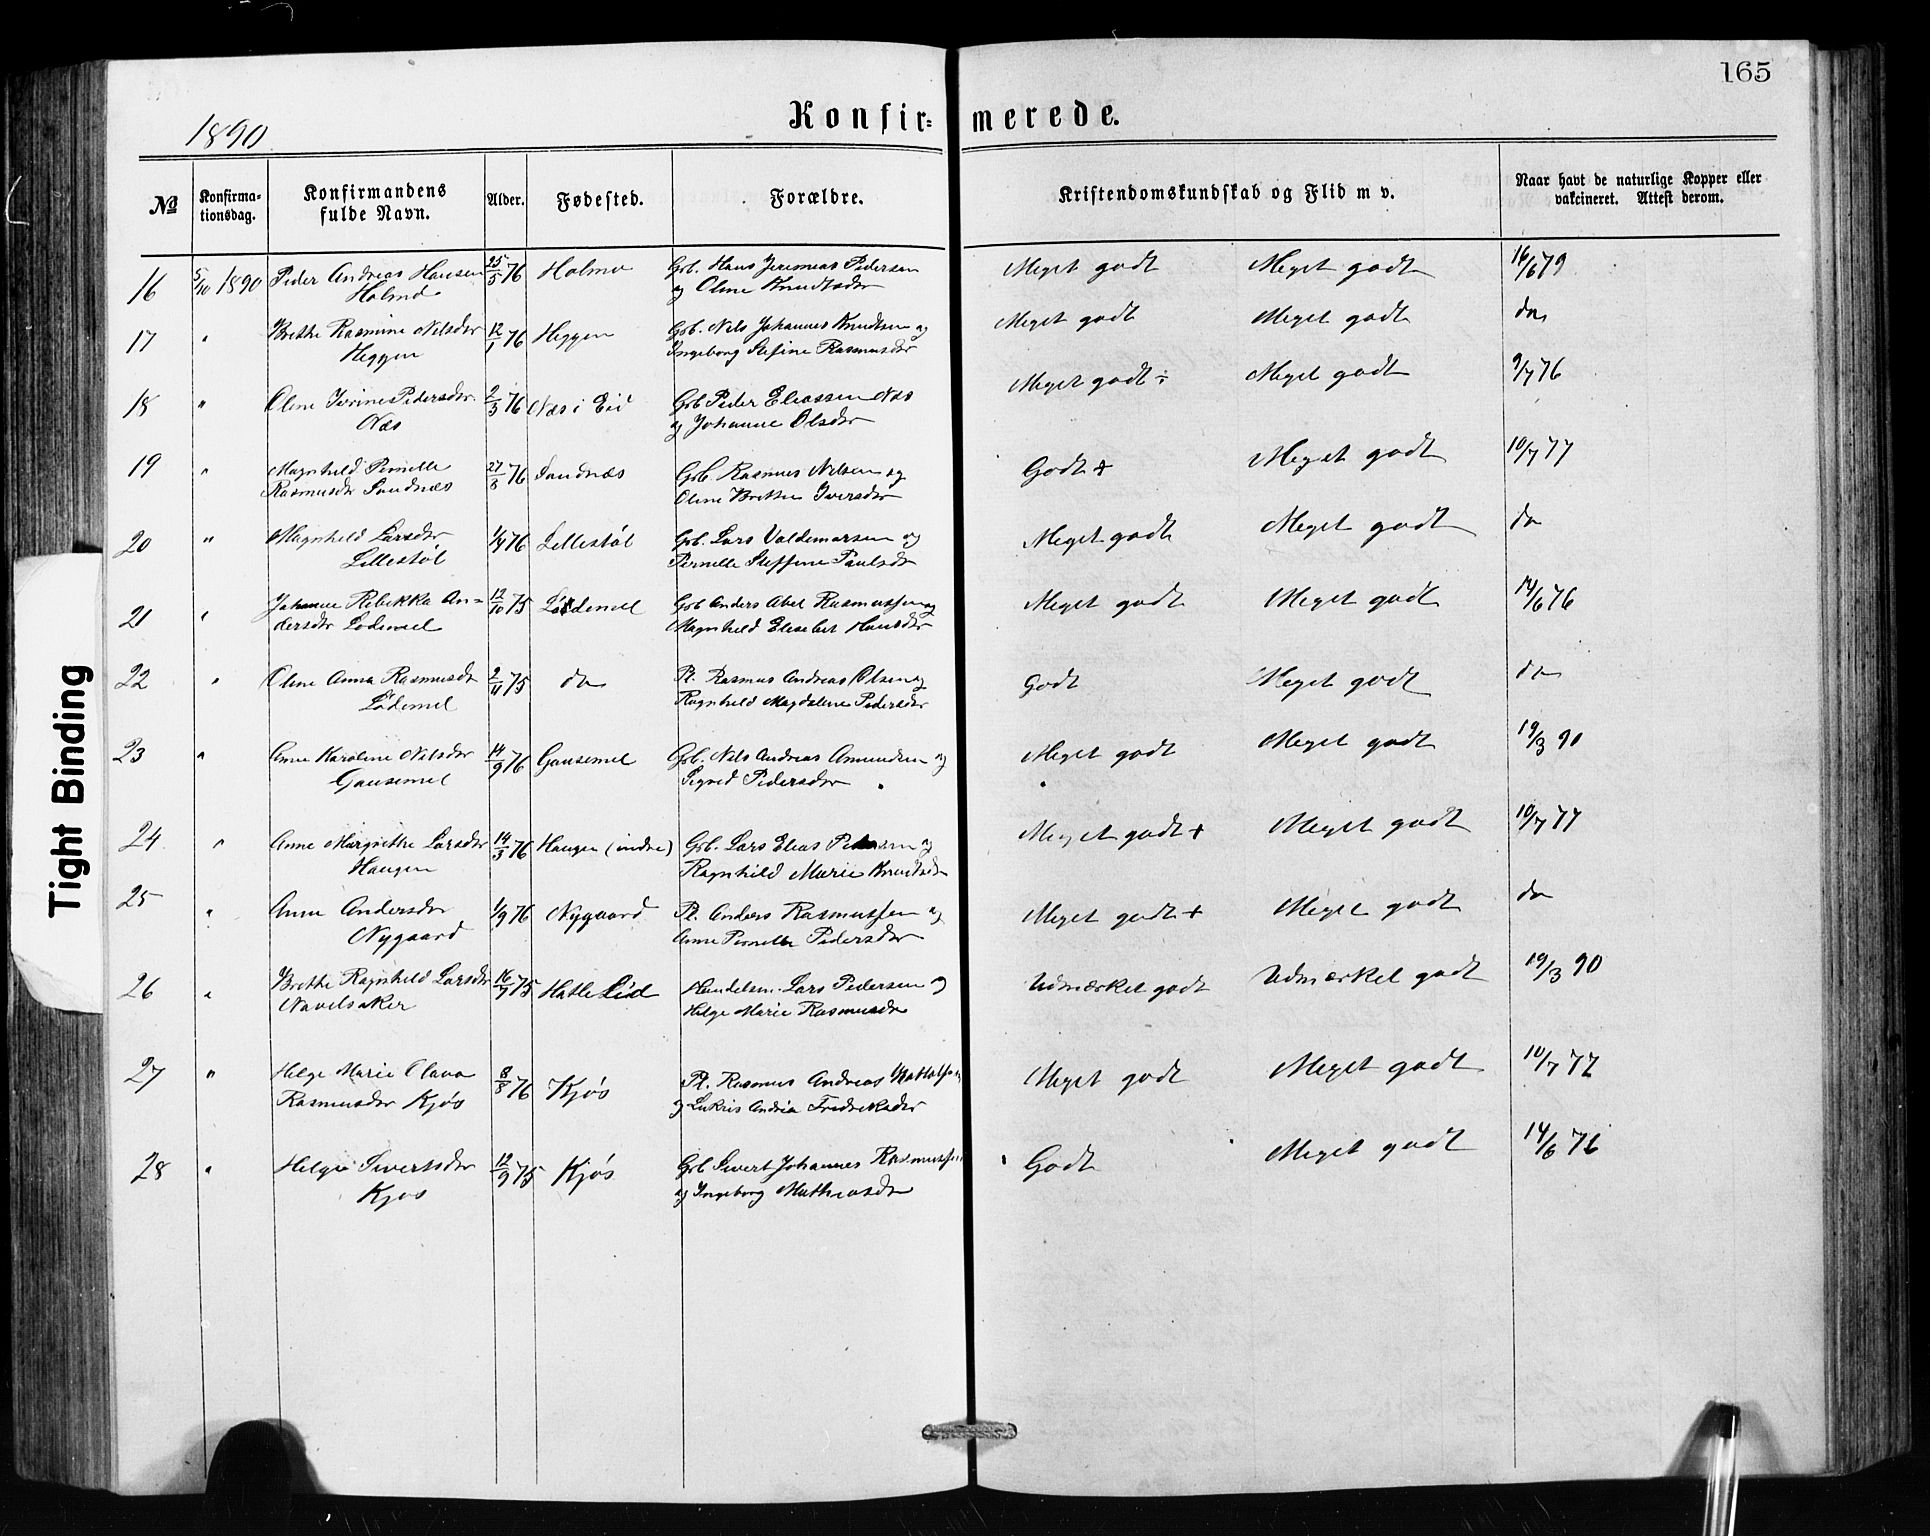 165
1890
Konfir= merede.
№ Konfirma-tionsdag. Konfirmandens fulde Navn. Alder. Fødested. Forældre. Kristendomskundskab og Flid m v. Naar havt de naturlige Kopper eller vakcineret. Attest derom.
16 5/10 1890 Peder Andreas Hansen 25/5 76 Holmø Grb. Hans Jeremias Pedersen Meget godt Meget godt 16/6 79
Holmø og Oline Knudtsdtr
17 " Brethe Rasmine Nilsdtr 12/1 76 Heggen Grb. Nils Johannes Knudtsen og Meget godt Meget godt do
Heggen Ingeborg Stefine Rasmusdtr
18 " Oline Iverine Pedersdtr 2/3 76 Næs i Eid Grb Peder Eliassen Næs Meget godt ÷ Meget godt 9/7 76
Næs og Johanne Olsdtr
19 " Magnhild Pernille 27/8 76 Sandnæs Grb. Rasmus Nilsen og Godt + Meget godt 10/7 77
Rasmusdtr Sandnæs Oline Brethe Iversdtr
20 " Magnhild Larsdtr 1/4 76 Lillestøl Grb. Lars Valdemarsen og Meget godt Meget godt do
Lillestøl Pernille Steffine Paulsdtr
21 " Johanne Rebekka An= 12/10 75 Lødemel Grb Anders Abel Rasmussen og Meget godt Meget godt 14/6 76
dersdtr Lødemel Magnhild Elisebet Hansdtr
22 " Oline Anna Rasmusdtr 2/11 75 do Pl. Rasmus Andreas Olsen og Godt Meget godt do
Lødemel Ragnhild Magdalene Pedersdtr
23 " Anne Karoline Nilsdtr 14/9 76 Gausemel Grb. Nils Andreas Amundsen og Meget godt Meget godt 19/3 90
Gausemel Sigrid Pedersdtr
24 " Anne Margrethe Larsdtr 14/3 76 Haugen (indre) Grb. Lars Elias Pedersen og Meget godt + Meget godt 10/7 77
Haugen Ragnhild Marie Knudtsdtr
25 " Anne Andersdtr 1/9 76 Nygaard Pl. Anders Rasmussen og Meget godt + Meget godt do
Nygaard Anne Pernille Pedersdtr
26 " Brethe Ragnhild Larsdtr 16/7 75 Hatlelid Handelsm. Lars Pedersen og Udmærket godt Udmærket godt 19/3 90
Navelsaker Helge Marie Rasmusdtr
27 " Helge Marie Olava 8/8 76 Kjøs Pl. Rasmus Andreas Meget godt Meget godt 10/7 77
Rasmusdtr Kjøs og Lukris Andrea Fredriksdtr
28 " Helga Sivertsdtr 12/9 75 Kjøs Grb Sivert Johannes Rasmussen Godt Meget godt 14/6 76
Kjøs og Ingeborg Mathiasdtr
Tight Binding